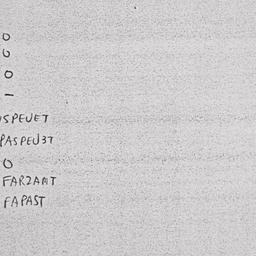 0
0
0
-
ISPEUET
PASPEU3T
0
FARZANT
FAPAST